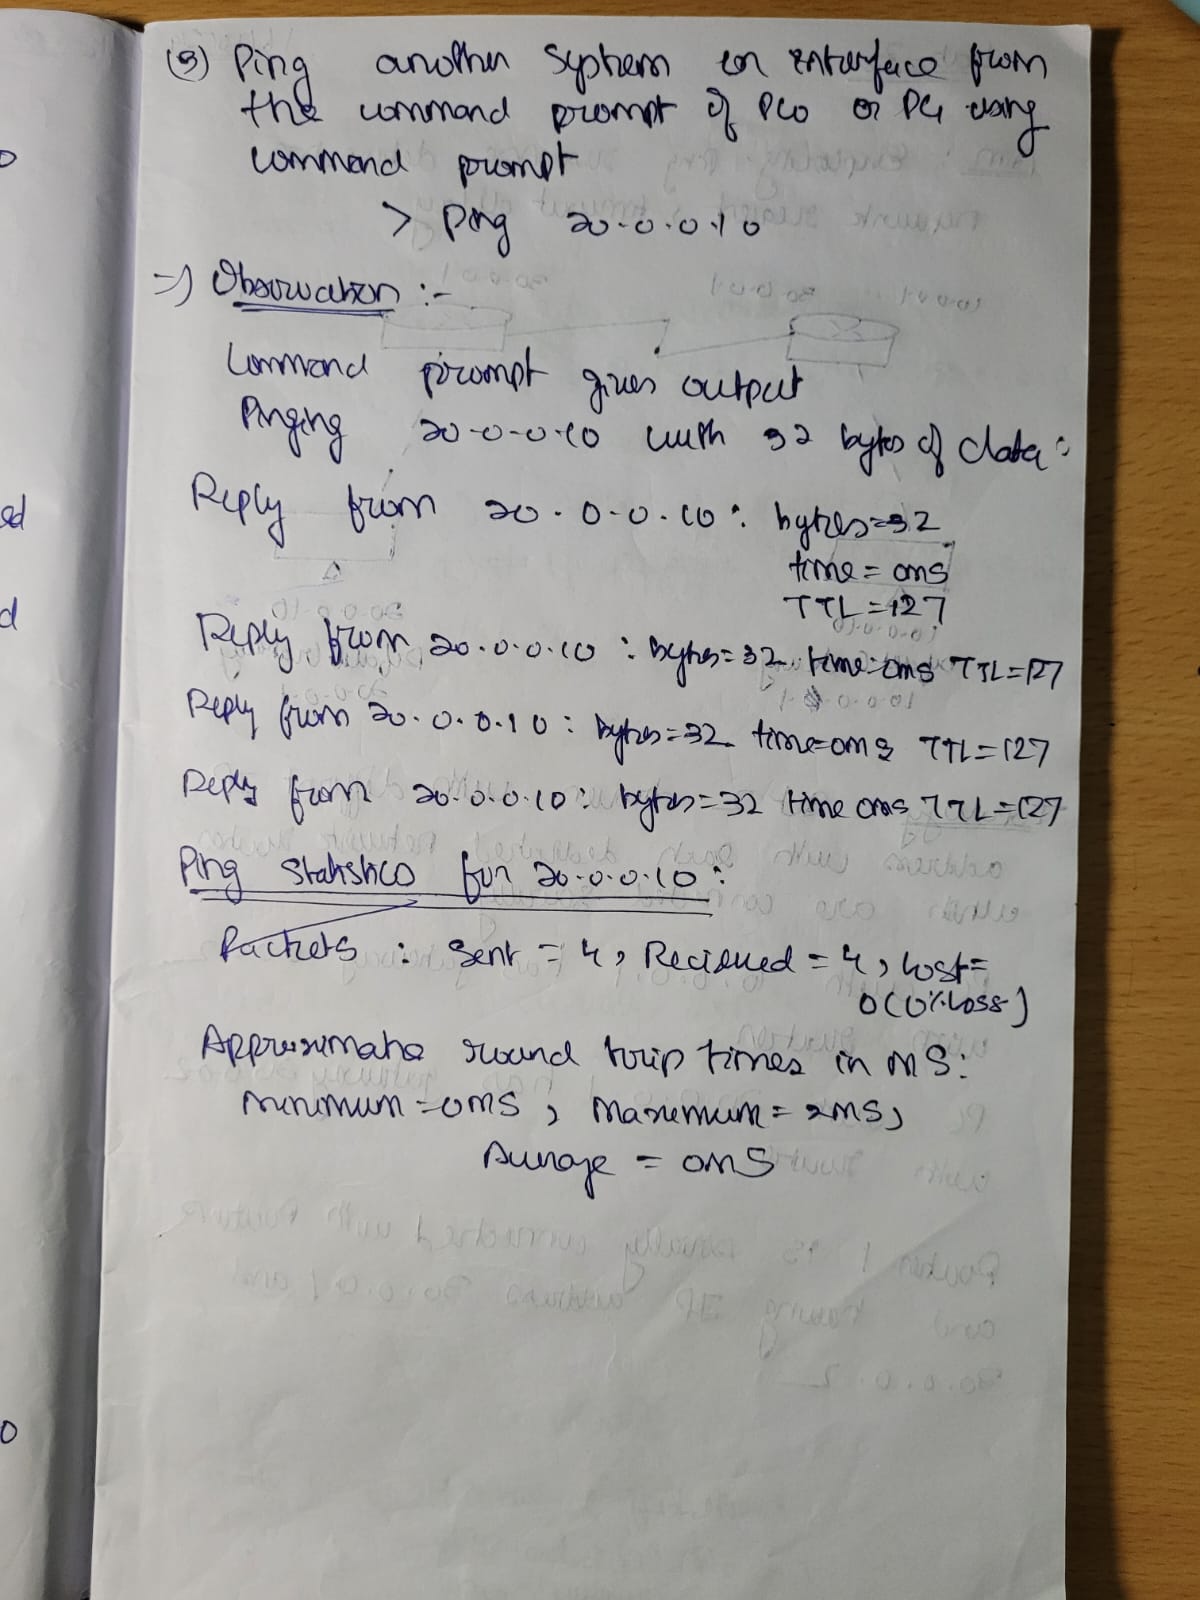 (9) Ping another System or Interface from
the command prompt of PC0 or PC1 using
command prompt
> Ping 20.0.0.10
=) Observation :-
Command prompt gives output
Pinging 20.0.0.10 with 32 bytes of data:
Reply from 20.0.0.10: bytes=32
time=0ms
TTL=127
Reply from 20.0.0.10 : bytes=32 time=0ms TTL=127
Reply from 20.0.0.10: bytes=32 time=0ms TTL=127
Reply from 20.0.0.10: bytes=32 time 0ms TTL=127
Ping Statistics for 20.0.0.10:
Packets : Sent = 4, Recieved = 4, Lost=
0(0% Loss)
Approximate round trip times in MS:
Minimum=0MS, Maximum=2MS,
Average = 0MS